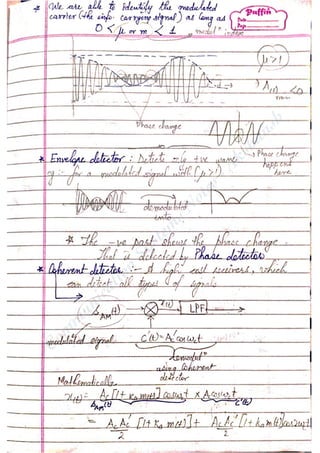 * We are able to identify the modulated
carrier (the info carrying signal) as long as
0 < μ or m < 1
modulⁿ index
Puffin
Date
Page
μ>1
<0
Phase change
Phase change
happend
here
* Envelope detector :- Detects only +ve wave.
eg :- for a modulated signal with (μ>1)
demodulated
into
* The -ve part shows the phase change.
That is detected by Phase detector
* Coherent detector :- A high cost receivers, which
can detect all types of signals
S_AM(t) → ⊗ x(t) → LPF →
modulated signal
c'(t) = A'c cos ωct
demodulⁿ
using Coherent
detector
Mathematically
x(t) = Ac [1 + ka m(t)] cos ωct × A'c cos ωct
S_AM(t)
c'(t)
= Ac Ac'/2 [1 + ka m(t)] + Ac Ac'/2 [1 + ka m(t)] cos 2ωct